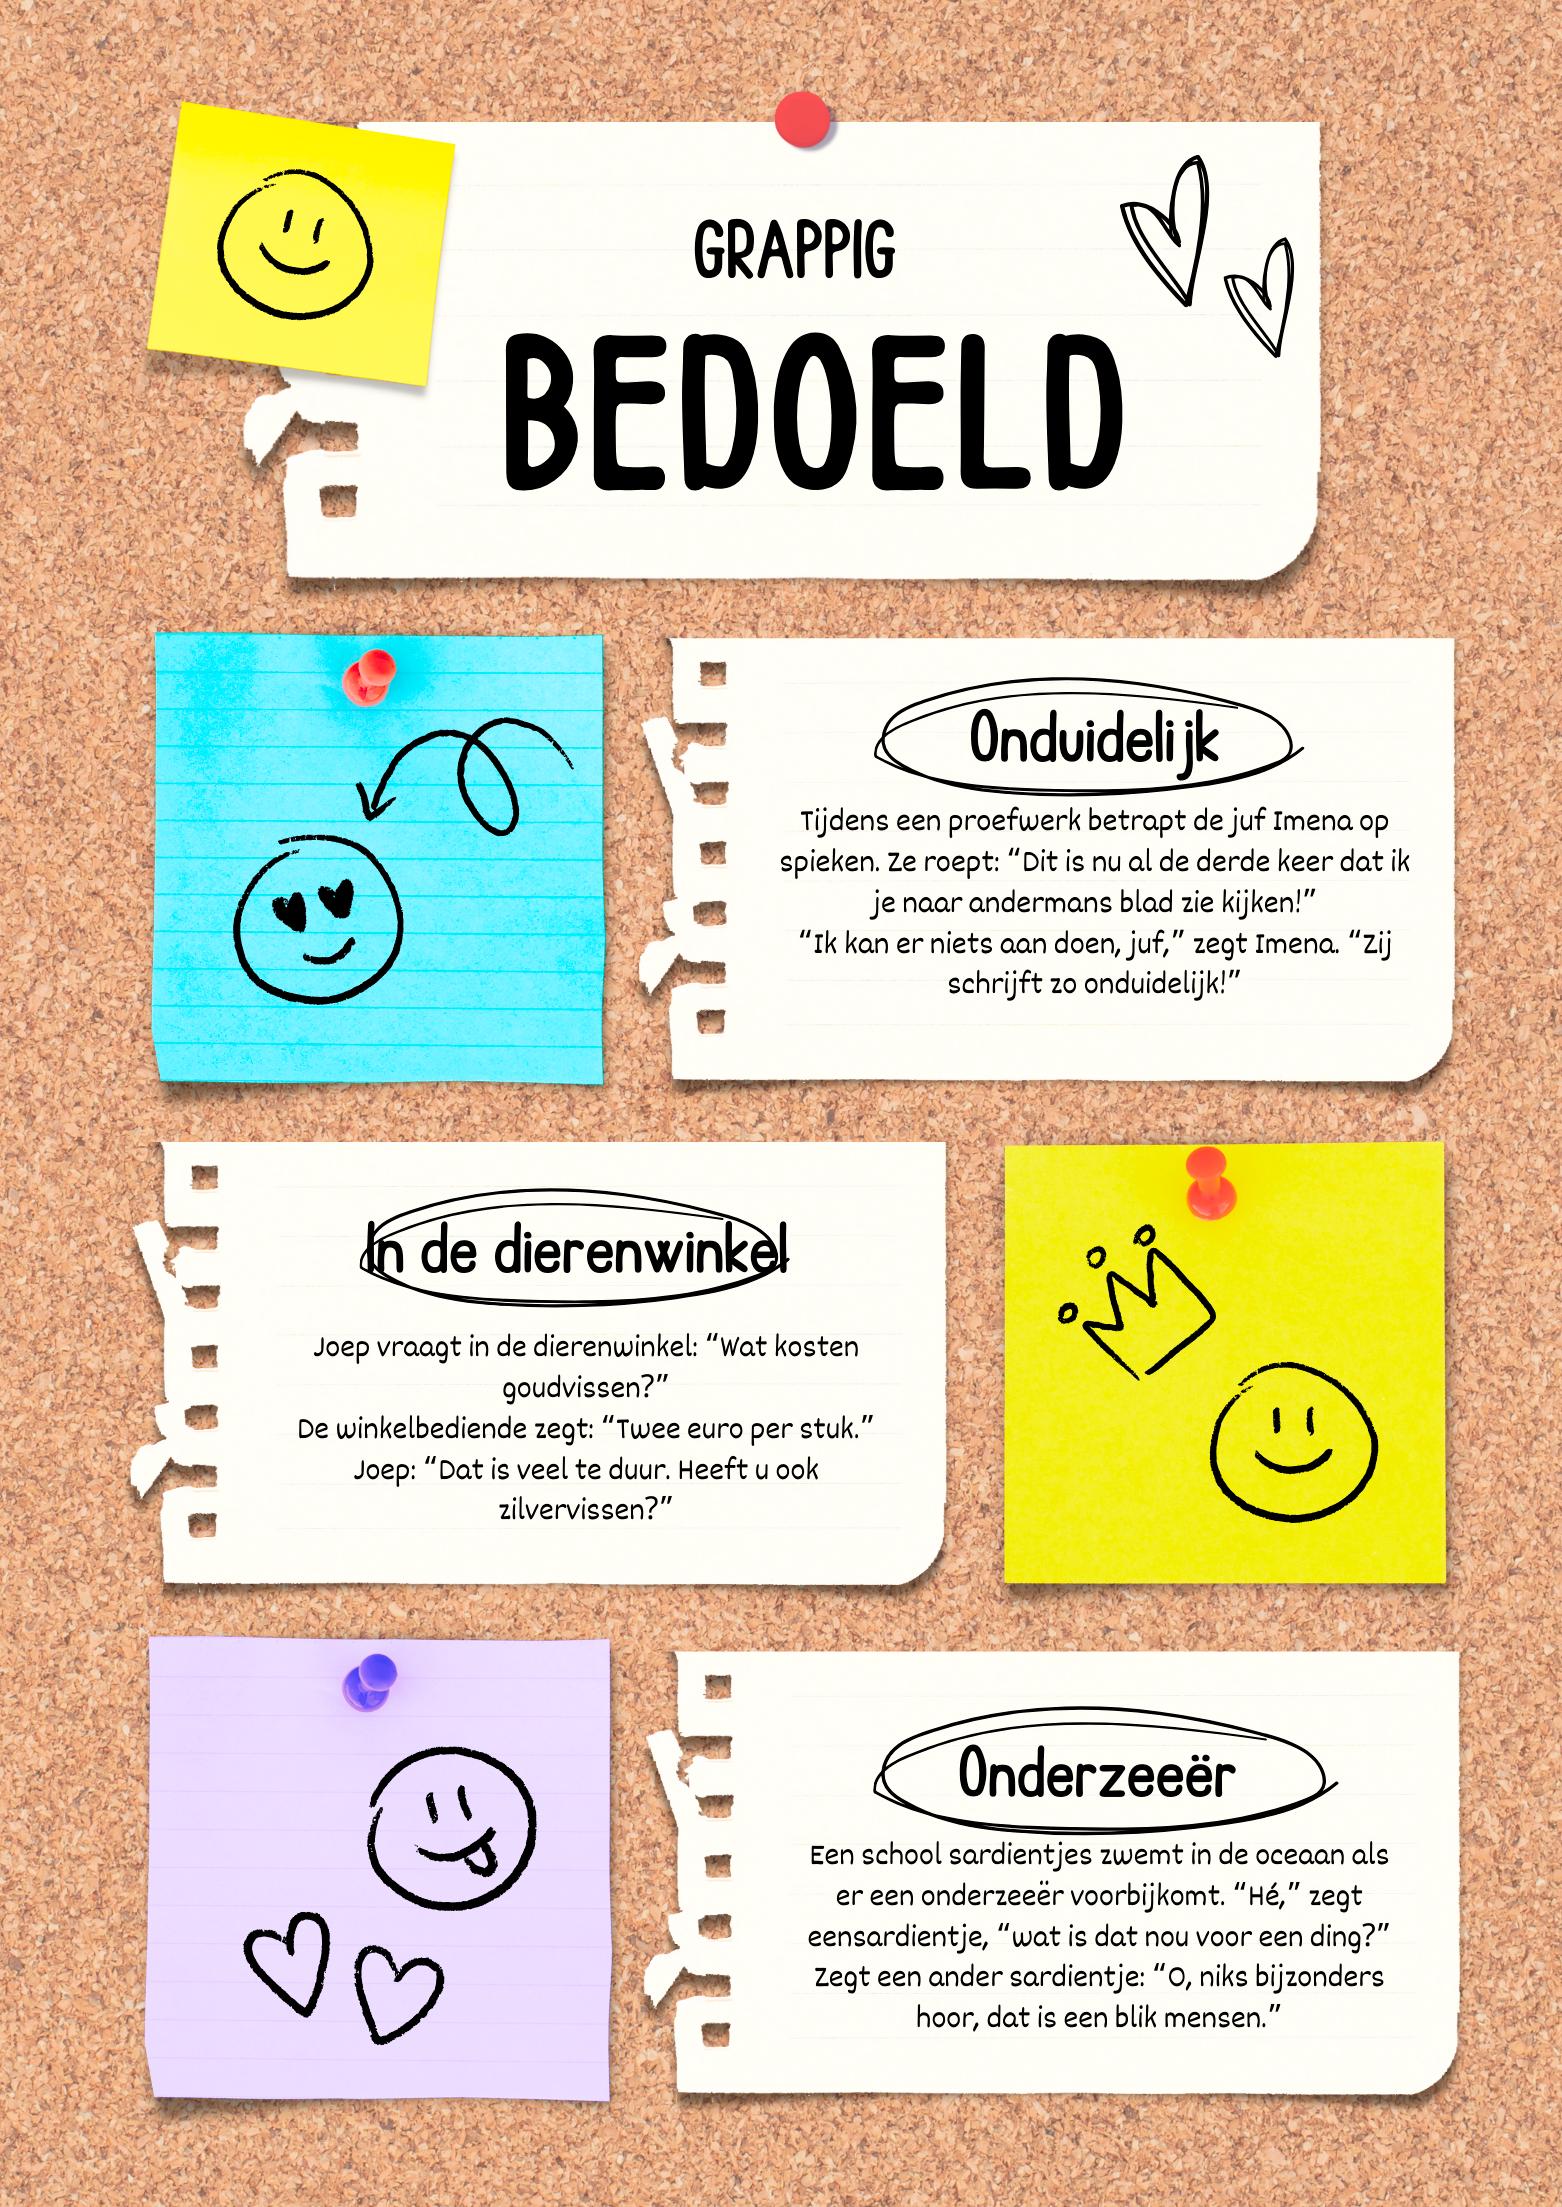 GRAPPIG
BEDOELD
Onduidelijk
Tijdens een proefwerk betrapt de juf Imena op
spieken. Ze roept: “Dit is nu al de derde keer dat ik
je naar andermans blad zie kijken!”
“Ik kan er niets aan doen, juf,” zegt Imena. “Zij
schrijft zo onduidelijk!”
In de dierenwinkel
Joep vraagt in de dierenwinkel: “Wat kosten
goudvissen?”
De winkelbediende zegt: “Twee euro per stuk.”
Joep: “Dat is veel te duur. Heeft u ook
zilvervissen?”
Onderzeeër
Een school sardientjes zwemt in de oceaan als
er een onderzeeër voorbijkomt. “Hé,” zegt
eensardientje, “wat is dat nou voor een ding?”
Zegt een ander sardientje: “O, niks bijzonders
hoor, dat is een blik mensen.”